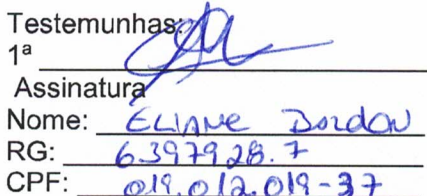 Testemunhas:
1ª
Assinatura
Nome: Eliane Bordon
RG: 6397928.7
CPF: 019.012.019-37